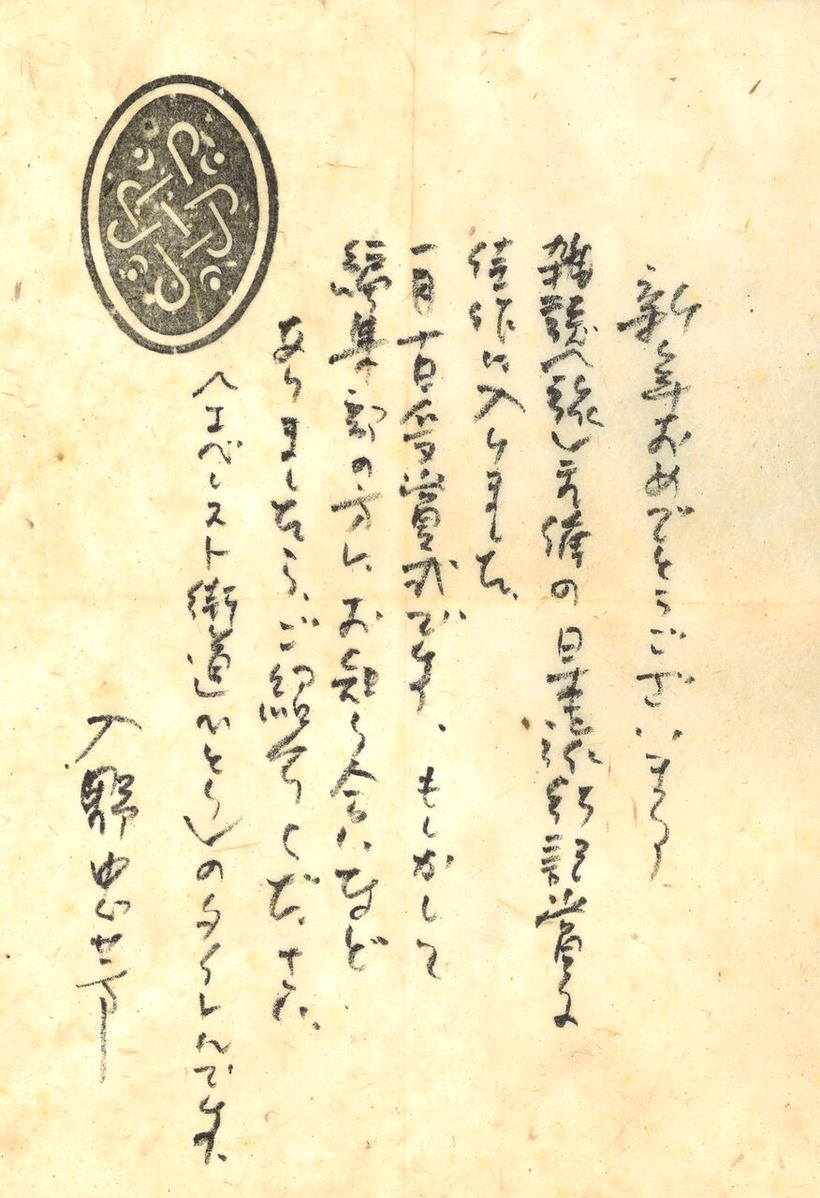 新年おめでとうございます
雑誌〈旅〉主催の日本旅行記賞に
佳作に入りました。
一月十日が授賞式です、もしかして
編集部の方に、お知り合いなど
ありましたら、ご紹介ください。
〈エベレスト街道ひとり〉のタイトルです。
入野忠芳